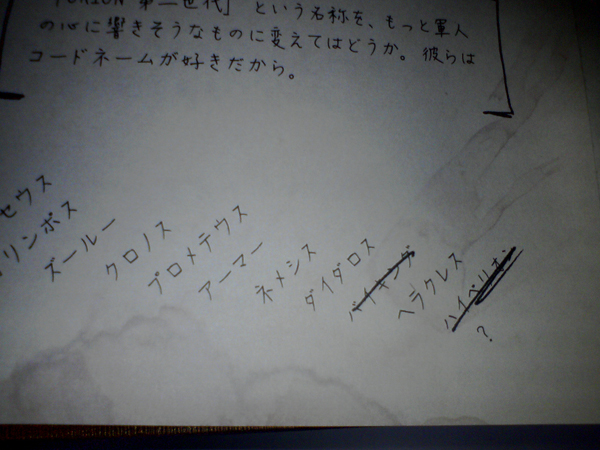 第二世代」 という名称を、もっと軍人
の心に響きそうなものに変えてはどうか。彼らは
コードネームが好きだから。
セウス
リンポス
ズールー
クロノス
プロメテウス
アーマー
ネメシス
ダイダロス
バイキング
ヘラクレス
ハイペリオン
?